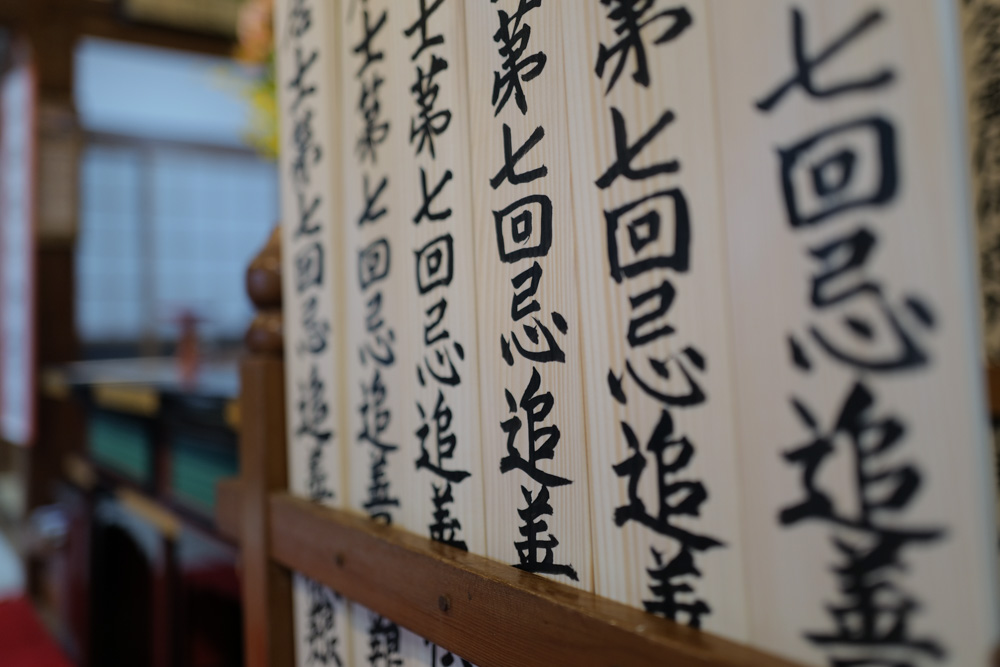 七回忌追善
第七回忌追善
第七回忌追善
士第七回忌追善
士第七回忌追善
士第七回忌追善